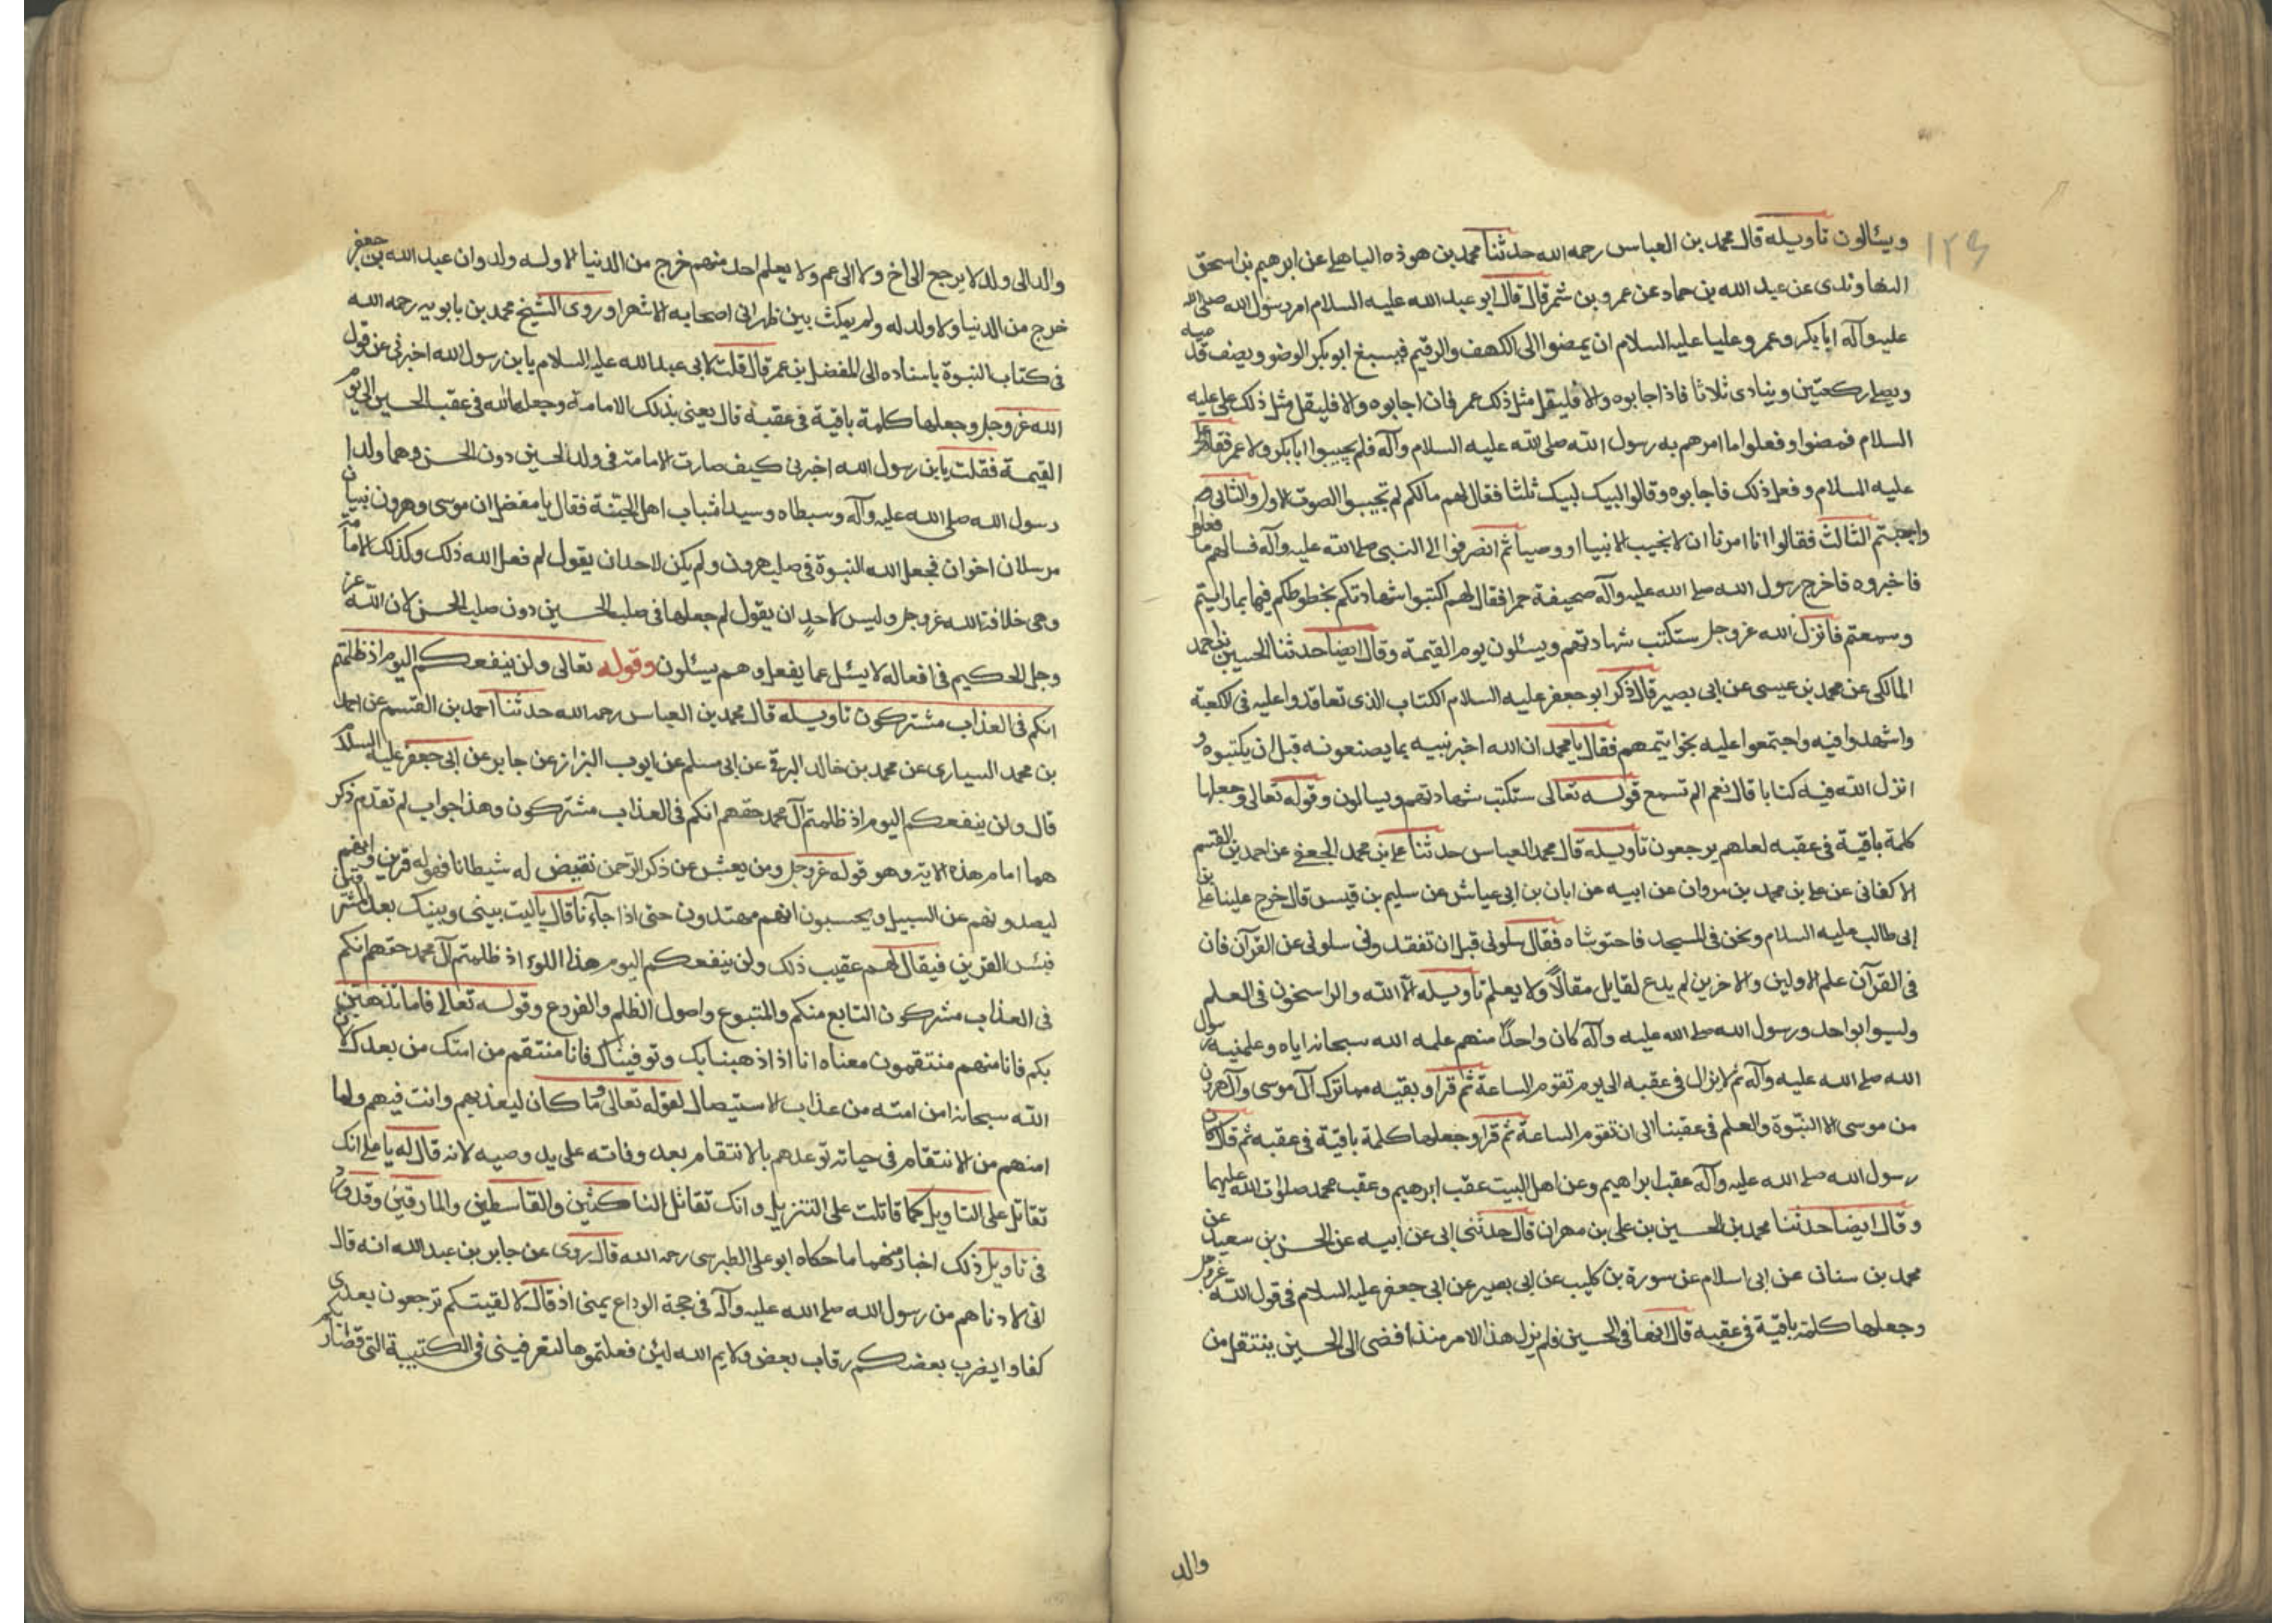 ١٢٩
ويسئالون تاويله قال محمد بن العباس رحمه الله حدثنا محمد بن هوذه الباهلي عن ابرهيم بن اسحق
النهاوندى عن عبد الله بن حماد عن عمرو بن شمر قال قال ابو عبد الله عليه السلام امر رسول الله صلى الله
عليه وآله ابا بكر وعمر وعليا عليه السلام ان يمضوا الى الكهف والرقيم فيسبغ ابو بكر الوضو ويصف قدميه
ويصلي ركعتين وينادى ثلاثا فاذا اجابوه والا فليقل مثل ذلك عمر فان اجابوه والا فليقل مثل ذلك علي عليه
السلام فمضوا وفعلوا ما امرهم به رسول الله صلى الله عليه السلام وآله فلم يجيبوا ابا بكر ولا عمر فقام علي
عليه السلام وفعل ذلك فاجابوه وقالوا لبيك لبيك ثلثا فقال لهم ما لكم لم تجيبوا الصوت الاول والثانى
واجبتم الثالث فقالوا انا امرنا ان لا نجيب الا نبيا او وصيا ثم انصرفوا الى النبى صلى الله عليه وآله فسالهم ما فعلوا
فاخبروه فاخرج رسول الله صلى الله عليه وآله صحيفة حمرا فقال لهم اكتبوا شهادتكم بخطوطكم فيها بما رايتم
وسمعتم فانزل الله عز وجل ستكتب شهادتهم ويسئلون يوم القيمة وقال ايضا حدثنا الحسين بن احمد
المالكى عن محمد بن عيسى عن ابى بصير قال ذكر ابو جعفر عليه السلام الكتاب الذى تعاقدوا عليه فى الكعبة
واشهدوا فيه واجتمعوا عليه بخواتيمهم فقال يا محمد ان الله اخبر نبيه بما يصنعونه قبل ان يكتبوه و
انزل الله فيه كتابا قال نعم الم تسمع قوله تعالى ستكتب شهادتهم ويسالون وقوله تعالى وجعلها
كلمة باقية فى عقبه لعلهم يرجعون تاويله قال محمد العباس حدثنا علي بن محمد الجعفي عن احمد بن القسم
الاكفانى عن علي بن محمد بن مروان عن ابيه عن ابان بن ابى عياش عن سليم بن قيس قال خرج علينا علي بن
ابى طالب عليه السلام ونحن فى المسجد فاحتوشاه فقال سلونى قبل ان تفقدونى سلونى عن القرآن فان
فى القرآن علم الاولين والاخرين لم يدع لقايل مقالا ولا يعلم تاويله الا الله والراسخون فى العلم
وليسوا بواحد ورسول الله صلى الله عليه وآله كان واحدا منهم علمه الله سبحانه اياه وعلمنيه رسول
الله صلى الله عليه وآله ثم لا يزال فى عقبه الى يوم تقوم الساعة ثم قرا وبقيه مما ترك آل موسى وآل هرون
من موسى الا النبوة والعلم فى عقبنا الى ان تقوم الساعة ثم قرا وجعلها كلمة باقية فى عقبه ثم قال كان
رسول الله صلى الله عليه وآله عقب ابراهيم وعن اهل البيت عقب ابرهيم وعقب محمد صلوات الله عليهما
وقال ايضا حدثنا محمد بن الحسين بن على بن مهران قال حدثنى ابى عن ابيه عن الحسن بن سعيد عن
محمد بن سنان عن ابى اسلام عن سورة بن كليب عن ابى بصير عن ابى جعفر عليه السلام فى قول الله عز وجل
وجعلها كلمة باقية فى عقبه قال انها فى الحسين فلم يزل هذا الامر منذ افضى الى الحسين ينتقل من
والد
والد الى ولد لا يرجع الى اخ ولا الى عم ولا يعلم احد منهم خرج من الدنيا الا وله ولد وان عبد الله بن جعفر
خرج من الدنيا ولا ولد له ولم يمكث بين ظهرانى اصحابه الا شهرا وروى الشيخ محمد بن بابويه رحمه الله
فى كتاب النبوة باسناده الى المفضل بن عمر قال قلت لابى عبد الله عليه السلام يا بن رسول الله اخبرنى عن قول
الله عز وجل وجعلها كلمة باقية فى عقبه قال يعنى بذلك الامامة وجعلها الله فى عقب الحسين الى يوم
القيمة فقلت يا بن رسول الله اخبرنى كيف صارت الامامة فى ولد الحسين دون الحسن وهما ولدا
رسول الله صلى الله عليه وآله وسبطاه وسيدا شباب اهل الجنة فقال يا مفضل ان موسى وهرون نبيان
مرسلان اخوان فجعل الله النبوة فى صلب هرون ولم يكن لاحد ان يقول لم فعل الله ذلك وكذلك الامامة
وهى خلافة الله عز وجل وليس لاحد ان يقول لم جعلها فى صلب الحسين دون صلب الحسن لان الله عز
وجل الحكيم فى افعاله لا يسئل عما يفعل وهم يسئلون وقوله تعالى ولن ينفعكم اليوم اذ ظلمتم
انكم فى العذاب مشتركون تاويله قال محمد بن العباس رحمه الله حدثنا احمد بن القسم عن احمد
بن محمد السيارى عن محمد بن خالد البرقى عن ابى مسلم عن ايوب البزاز عن جابر عن ابى جعفر عليه السلام
قال ولن ينفعكم اليوم اذ ظلمتم آل محمد حقهم انكم فى العذاب مشتركون وهذا جواب لم تقدم ذكر
هما امام هذه الاية وهو قوله عز وجل ومن يعش عن ذكر الرحمن نقيض له شيطانا فهو له قرين وانهم
ليصدونهم عن السبيل ويحسبون انهم مهتدون حتى اذا جآءنا قال يا ليت بينى وبينك بعد المشرقين
فبئس القرين فيقال لهم عقيب ذلك ولن ينفعكم اليوم هذا اذ ظلمتم آل محمد حقهم انكم
فى العذاب مشتركون التابع منكم والمتبوع واصول الظلم والفروع وقوله تعالى فاما نذهبن
بك فانا منهم منتقمون معناه انا اذا ذهبنا بك وتوفيناك فانا منتقم من امتك من بعدك لان
الله سبحانه امن امته من عذاب الاستيصال لقوله تعالى وما كان ليعذبهم وانت فيهم ولما
امنهم من الانتقام فى حياته توعدهم بالانتقام بعد وفاته على يد وصيه لانه قال له يا علي انك
تقاتل على التاويل كما قاتلت على التنزيل وانك تقاتل الناكثين والقاسطين والمارقين وقد ورد
فى تاويل ذلك اخبار منهما ما حكاه ابو على الطبرسى رحمه الله قال روى عن جابر بن عبد الله انه قال
انى لادناهم من رسول الله صلى الله عليه وآله فى حجة الوداع بمنى اذ قال لا لقيتكم ترجعون بعدى
كفارا يضرب بعضكم رقاب بعض ولايم الله لئن فعلتموها لتعرفيننى فى الكتيبة التى تضاربكم